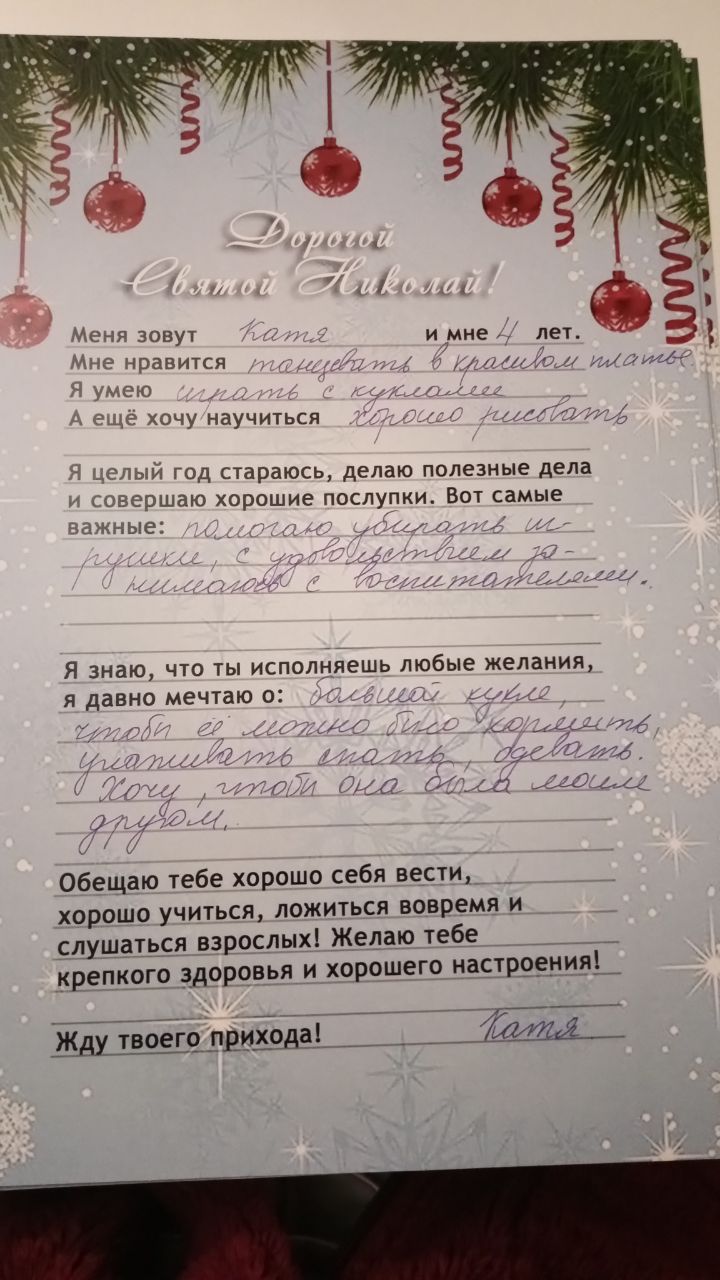 Дорогой
Святой Николай!
Меня зовут Катя и мне 4 лет.
Мне нравится танцевать в красивом платье.
Я умею играть с куклами
А ещё хочу научиться хорошо рисовать
Я целый год стараюсь, делаю полезные дела
и совершаю хорошие послупки. Вот самые
важные: помогаю убирать иг-
рушки, с удовольствием за-
нимаюсь с воспитателями.
Я знаю, что ты исполняешь любые желания,
я давно мечтаю о: большой кукле,
чтобы её можно было кормить,
улаживать спать, одевать.
Хочу, чтобы она была моим
другом.
Обещаю тебе хорошо себя вести,
хорошо учиться, ложиться вовремя и
слушаться взрослых! Желаю тебе
крепкого здоровья и хорошего настроения!
Жду твоего прихода! Катя